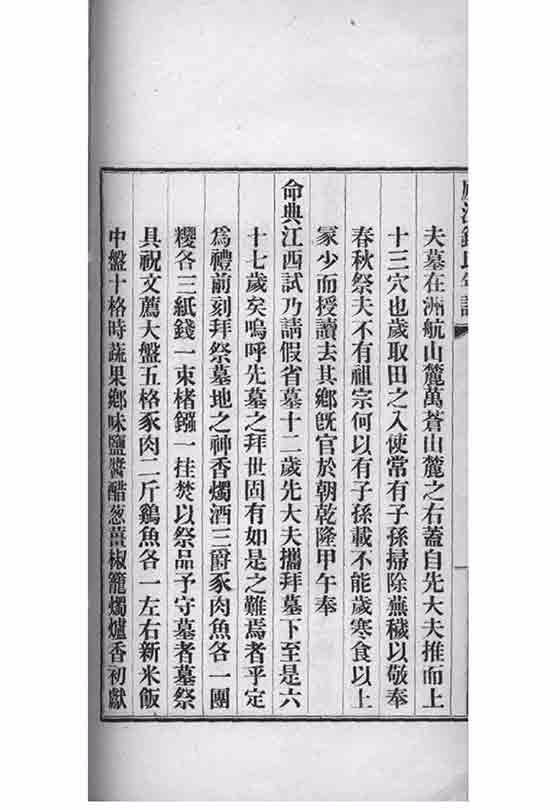 夫墓在洲航山麓萬蒼山麓之右蓋自先大夫推而上
十三穴也歲取田之入使常有子孫掃除蕪穢以敬奉
春秋祭夫不有祖宗何以有子孫載不能歲寒食以上
冢少而授讀去其鄉既官於朝乾隆甲午奉
命典江西試乃請假省墓十二歲先大夫攜拜墓下至是六
十七歲矣嗚呼先墓之拜世固有如是之難焉者乎定
爲禮前刻拜祭墓地之神香燭酒三爵豕肉魚各一團
糭各三紙錢一束楮鏹一挂焚以祭品予守墓者墓祭
具祝文薦大盤五格豕肉二斤鷄魚各一左右新米飯
中盤十格時蔬果鄉味鹽醬醋葱薑椒籠燭爐香初獻